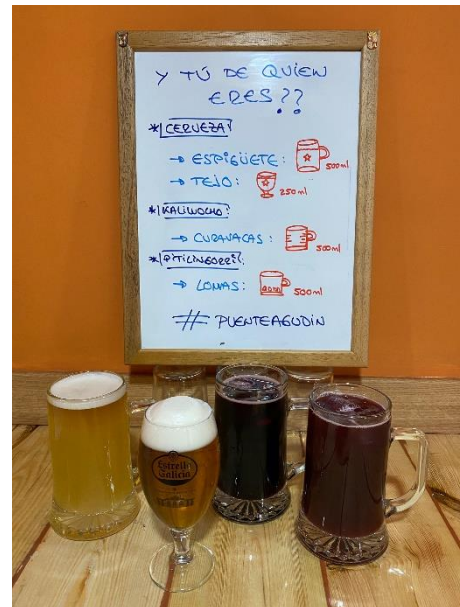 Y TÚ DE QUIEN
ERES??
* CERVEZA:
→ ESPIGÜETE: 500ml
→ TEJO: 250ml
* KALIMOCHO:
→ CURAVACAS: 500ml
* PITILINGORRI:
→ LOMAS: 500ml
# PUENTEAGUDIN
Estrella
Galicia